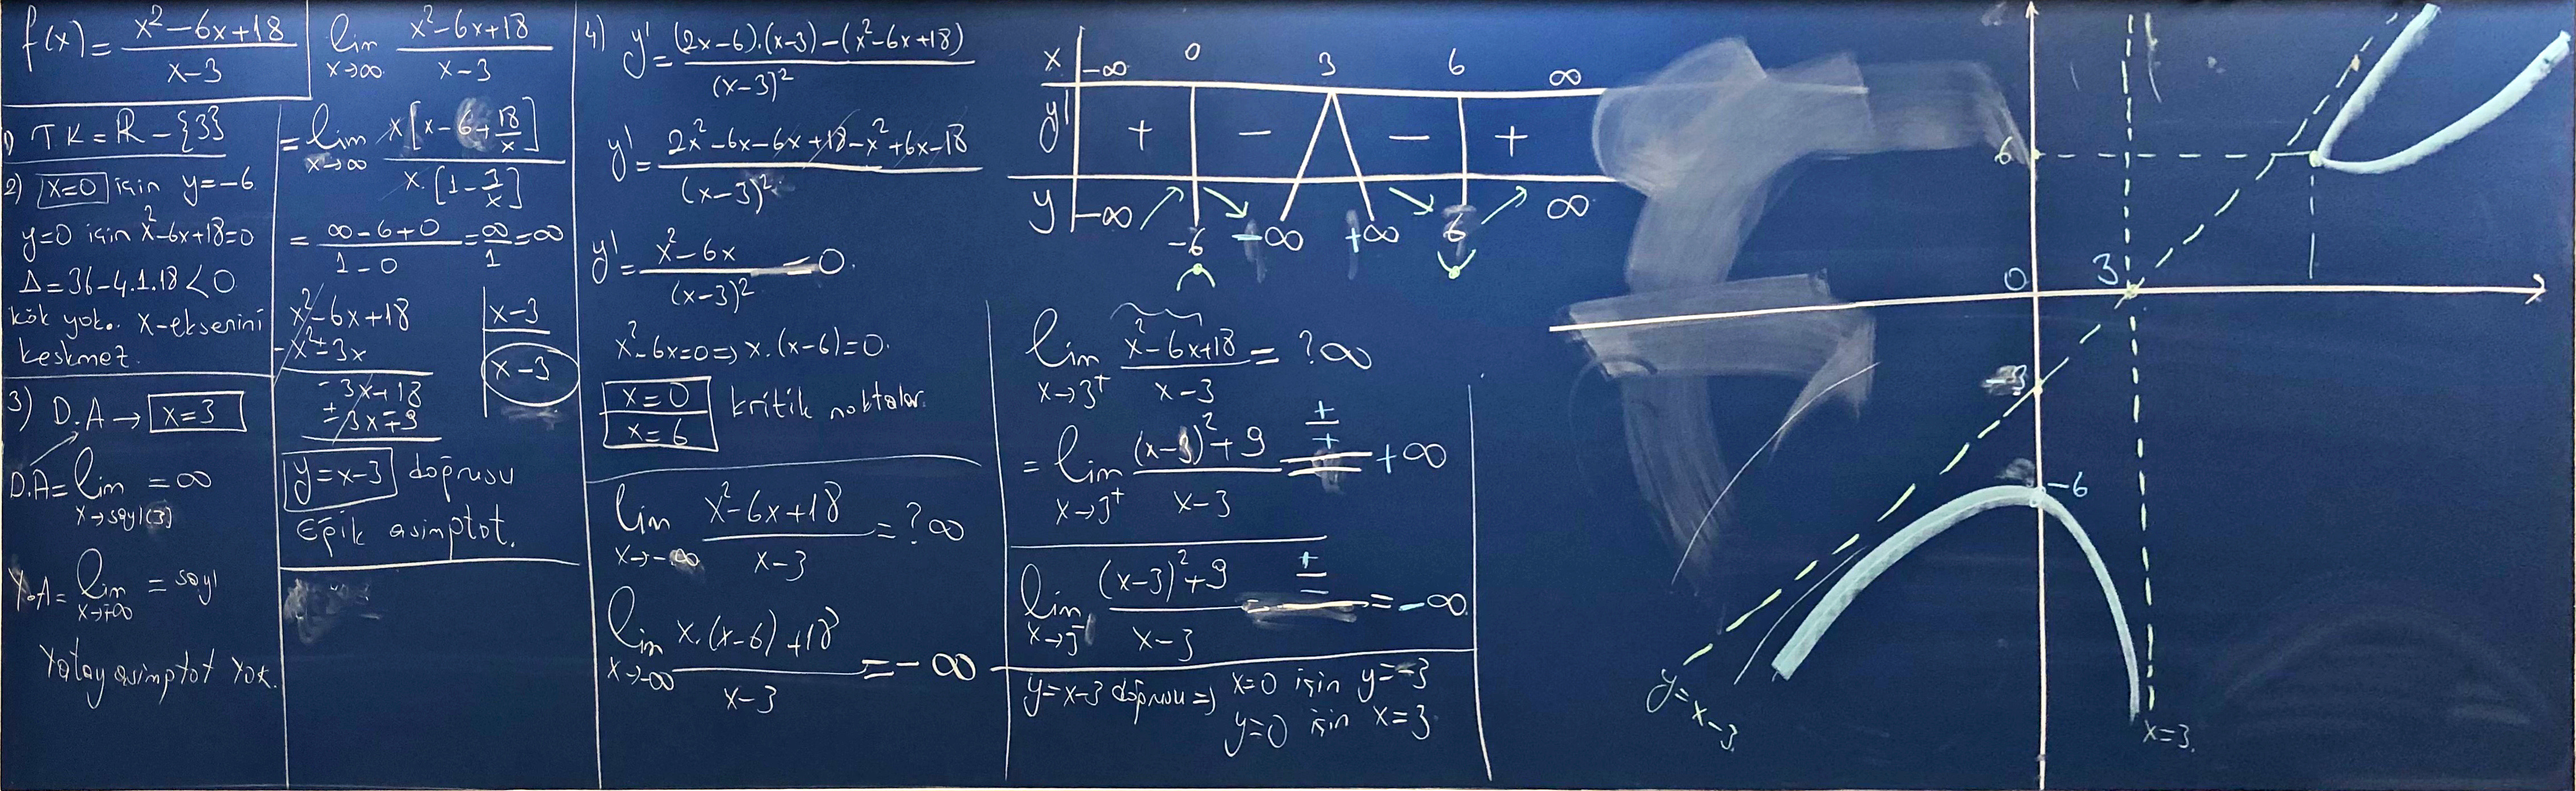 f(x) = (x² - 6x + 18)/(x - 3)
1) T.K = R - {3}
2) x=0 için y=-6
y=0 için x²-6x+18=0
Δ=36-4.1.18<0
kök yok. x-eksenini
kesmez.
3) D.A → x=3
D.A = lim x→sayı(3) = ∞
Y.A = lim x→∓∞ = sayı
Yatay asimptot yok.
lim x→∞ (x²-6x+18)/(x-3)
= lim x→∞ x[x-6+18/x]/x.[1-3/x]
= (∞-6+0)/(1-0) = ∞/1 = ∞
x²-6x+18 | x-3
-x²±3x | x-3
-3x+18
±3x∓9
y=x-3 doğrusu
Eğik asimptot.
4) y' = ((2x-6).(x-3)-(x²-6x+18))/(x-3)²
y' = (2x²-6x-6x+18-x²+6x-18)/(x-3)²
y' = (x²-6x)/(x-3)² = 0.
x²-6x=0 => x.(x-6)=0.
x=0
x=6
kritik noktalar.
lim x→-∞ (x²-6x+18)/(x-3) = ? ∞
lim x→-∞ (x.(x-6)+18)/(x-3) = -∞
x | -∞ 0 3 6 ∞
y' | + - - +
y | -∞ ↗ -6 ↘ -∞ +∞ ↘ 6 ↗ ∞
lim x→3⁺ (x²-6x+18)/(x-3) = ? ∞
= lim x→3⁺ ((x-3)²+9)/(x-3) = +/+ = +∞
lim x→3⁻ ((x-3)²+9)/(x-3) = +/- = -∞
y=x-3 doğrusu => x=0 için y=-3
y=0 için x=3
6
0
3
-3
-6
y=x-3
x=3